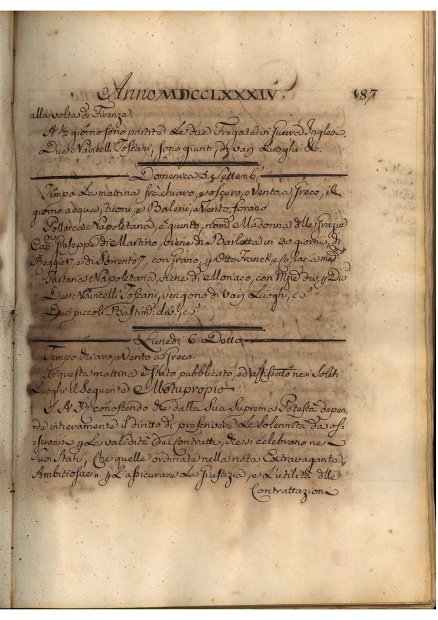 Anno MDCCLXXXIV. 187
alla volta di Firenze.
A 1/2 giorno sono partite le due Fregate in Guerra Inglese.
Due Navicelli Toscani, sono giunti, di varj Luoghi &c.
Domenica 5 Settembe
Tempo La mattina frà chiaro, e oscuro, e Vento a Greco, il
giorno acqua, tuoni, e Baleni, e Vento forano
Pollacca Napoletana, è giunto, nom.ª Madonna delle Grazie
Cap.º Giuseppe di Martino, viene di Barletta in 30 giorni, di
7, e di Sorrento 7, con Grano, p Otto Franck, e
Tartana Napoletana, viene di Monaco, con
Due Navicelli Toscani, vengono di varj Luoghi, e
Due piccoli Bastim.
Lunedì 6 Detto
Tempo chiaro, e Vento a Greco
In questa mattina è stato pubblicato, ed affisso ne i soliti
Luoghi il Sequente Motuproprio
S. A. R. conoscendo che dalla Sua Suprema Potestà depen-
de interamente il diritto di prescrivere le Solennità da os-
servarsi p la validità dei Contratti, che si celebrano ne
Suoi Stati, e che quelle ordinate nella nota Extravagante,
Ambitiosae p l'assicurare la Giustizia, e l'utilità delle
Contrattazioni